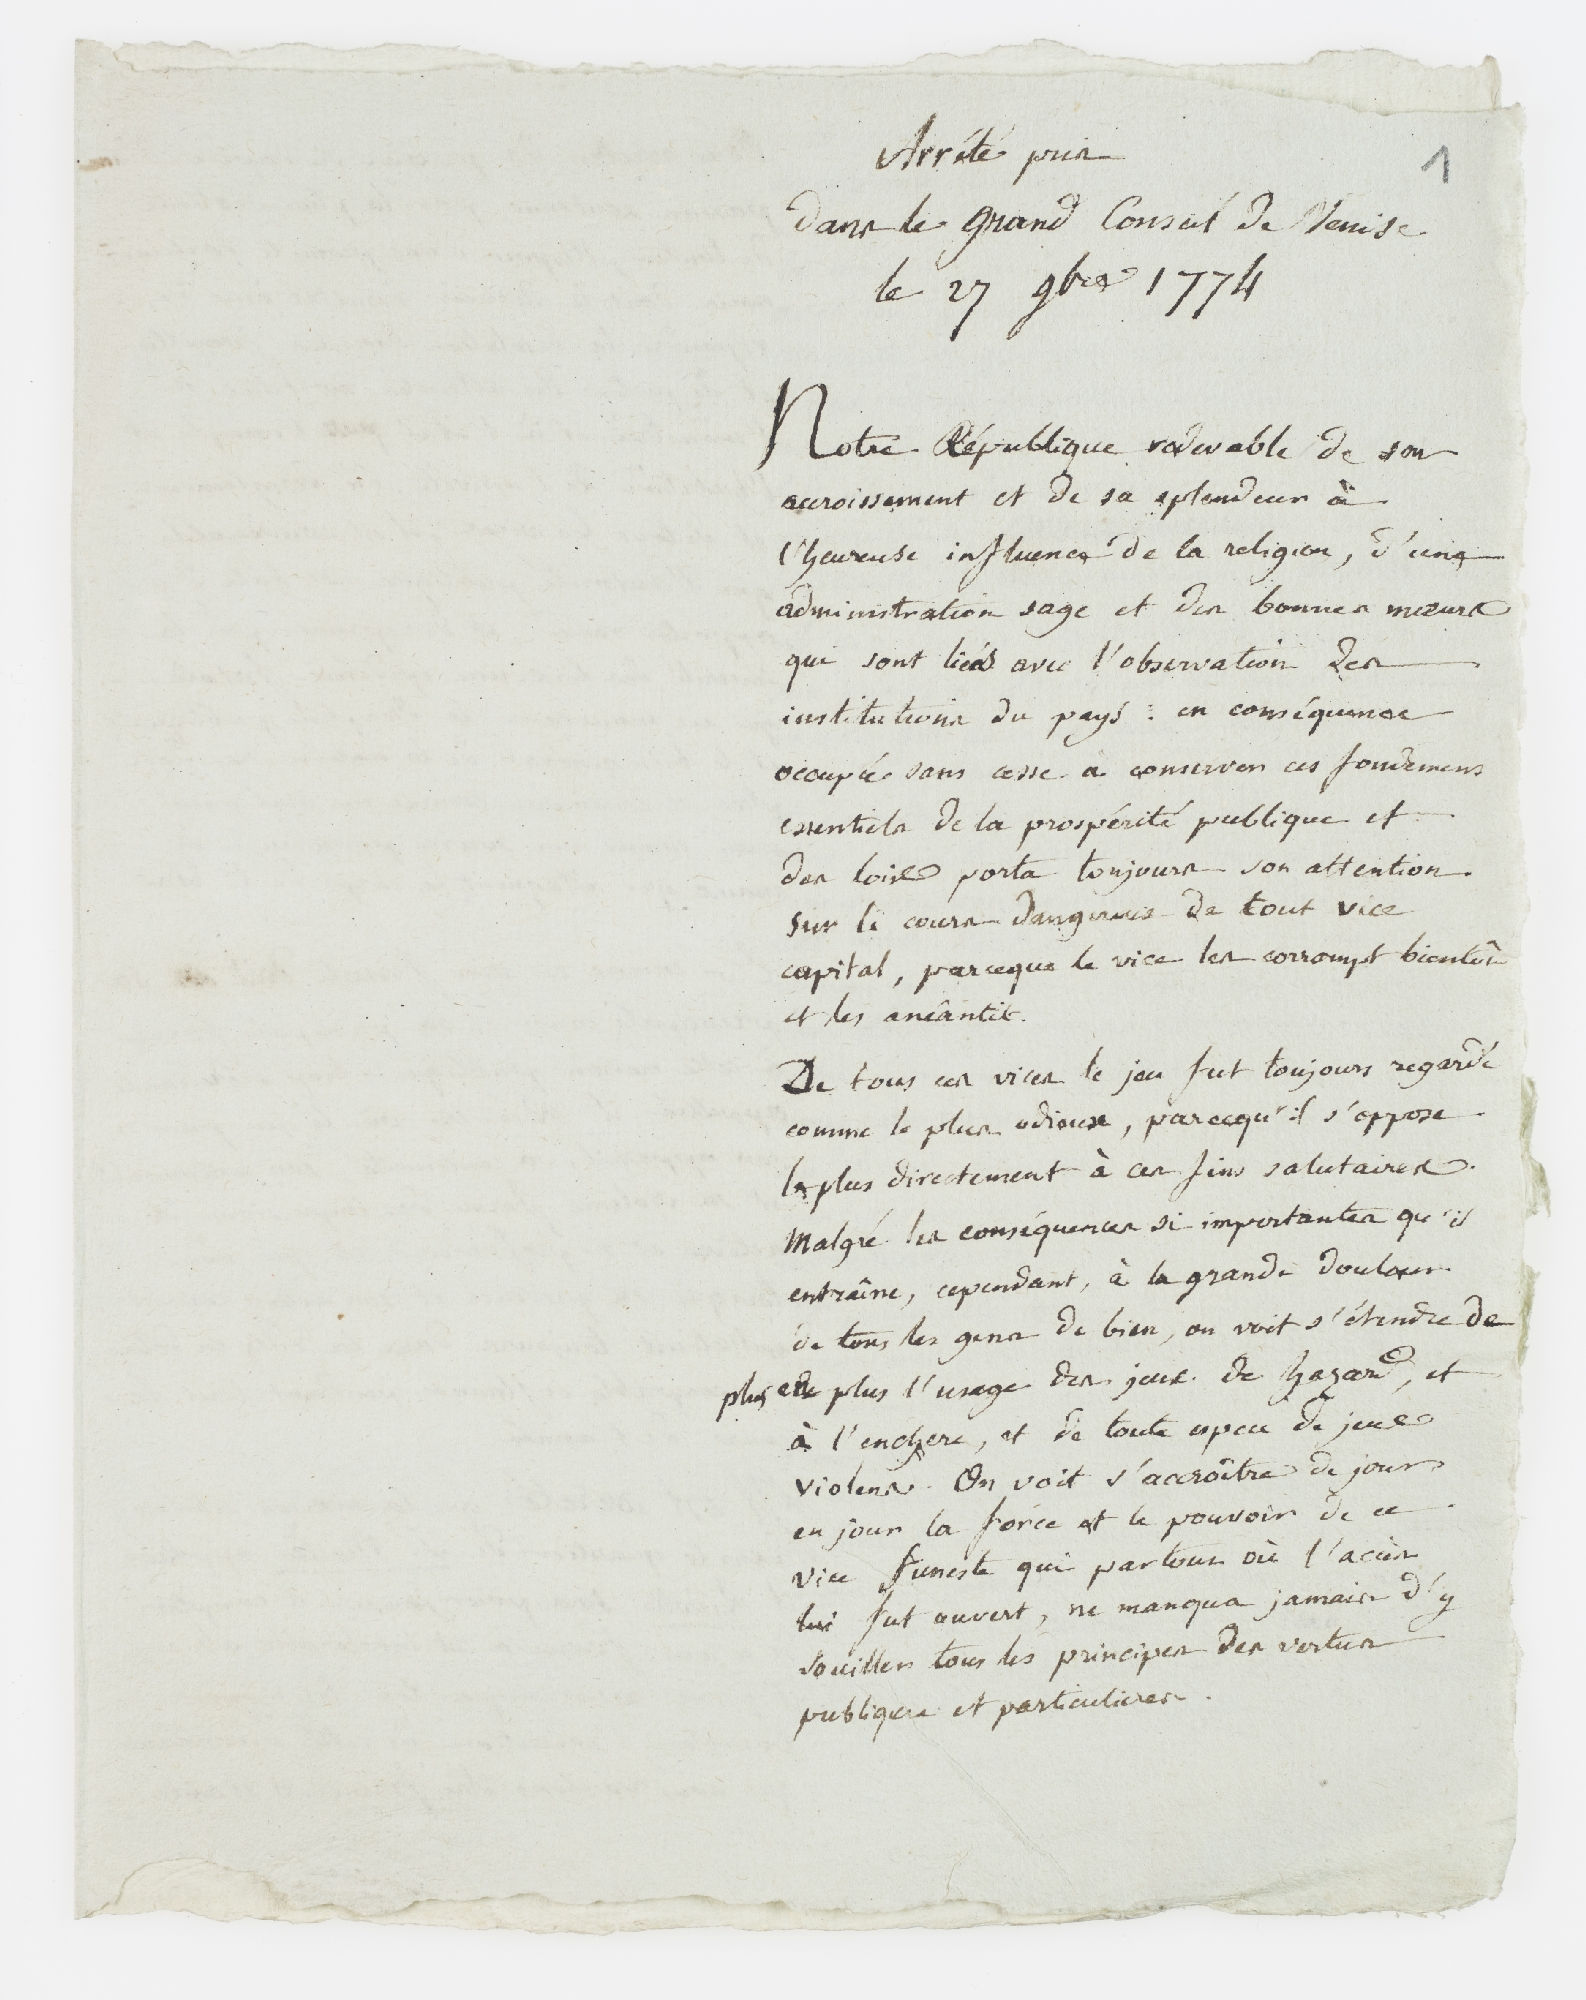 1
Arrêté pris
dans le grand Conseil de Venise
le 27 9bre 1774
Notre République redevable de son
accroissement et de sa splendeur à
l'heureuse influence de la religion, d'une
administration sage et des bonnes mœurs
qui sont liés avec l'observation des
institutions du pays : en conséquence
occupée sans cesse à conserver ces fondemens
essentiels de la prospérité publique et
des loix porta toujours son attention
sur le cours dangereux de tout vice
capital, parceque le vice les corrompt bientôt
et les anéantit.
De tous ces vices le jeu fut toujours regardé
comme le plus odieux, parcequ'il s'oppose
le plus directement à ces fins salutaires.
Malgré les conséquences si importantes qu'il
entraîne, cependant, à la grande douleur
de tous les gens de bien, on voit s'étendre de
plus en plus l'usage des jeux de hazard, et
à l'enchere, et de toute espece de jeux
violens. On voit s'accroître de jour
en jour la force et le pouvoir de ce
vice funeste qui partout où l'accès
lui fut ouvert, ne manqua jamais d'y
souiller tous les principes des vertus
publiques et particulieres.